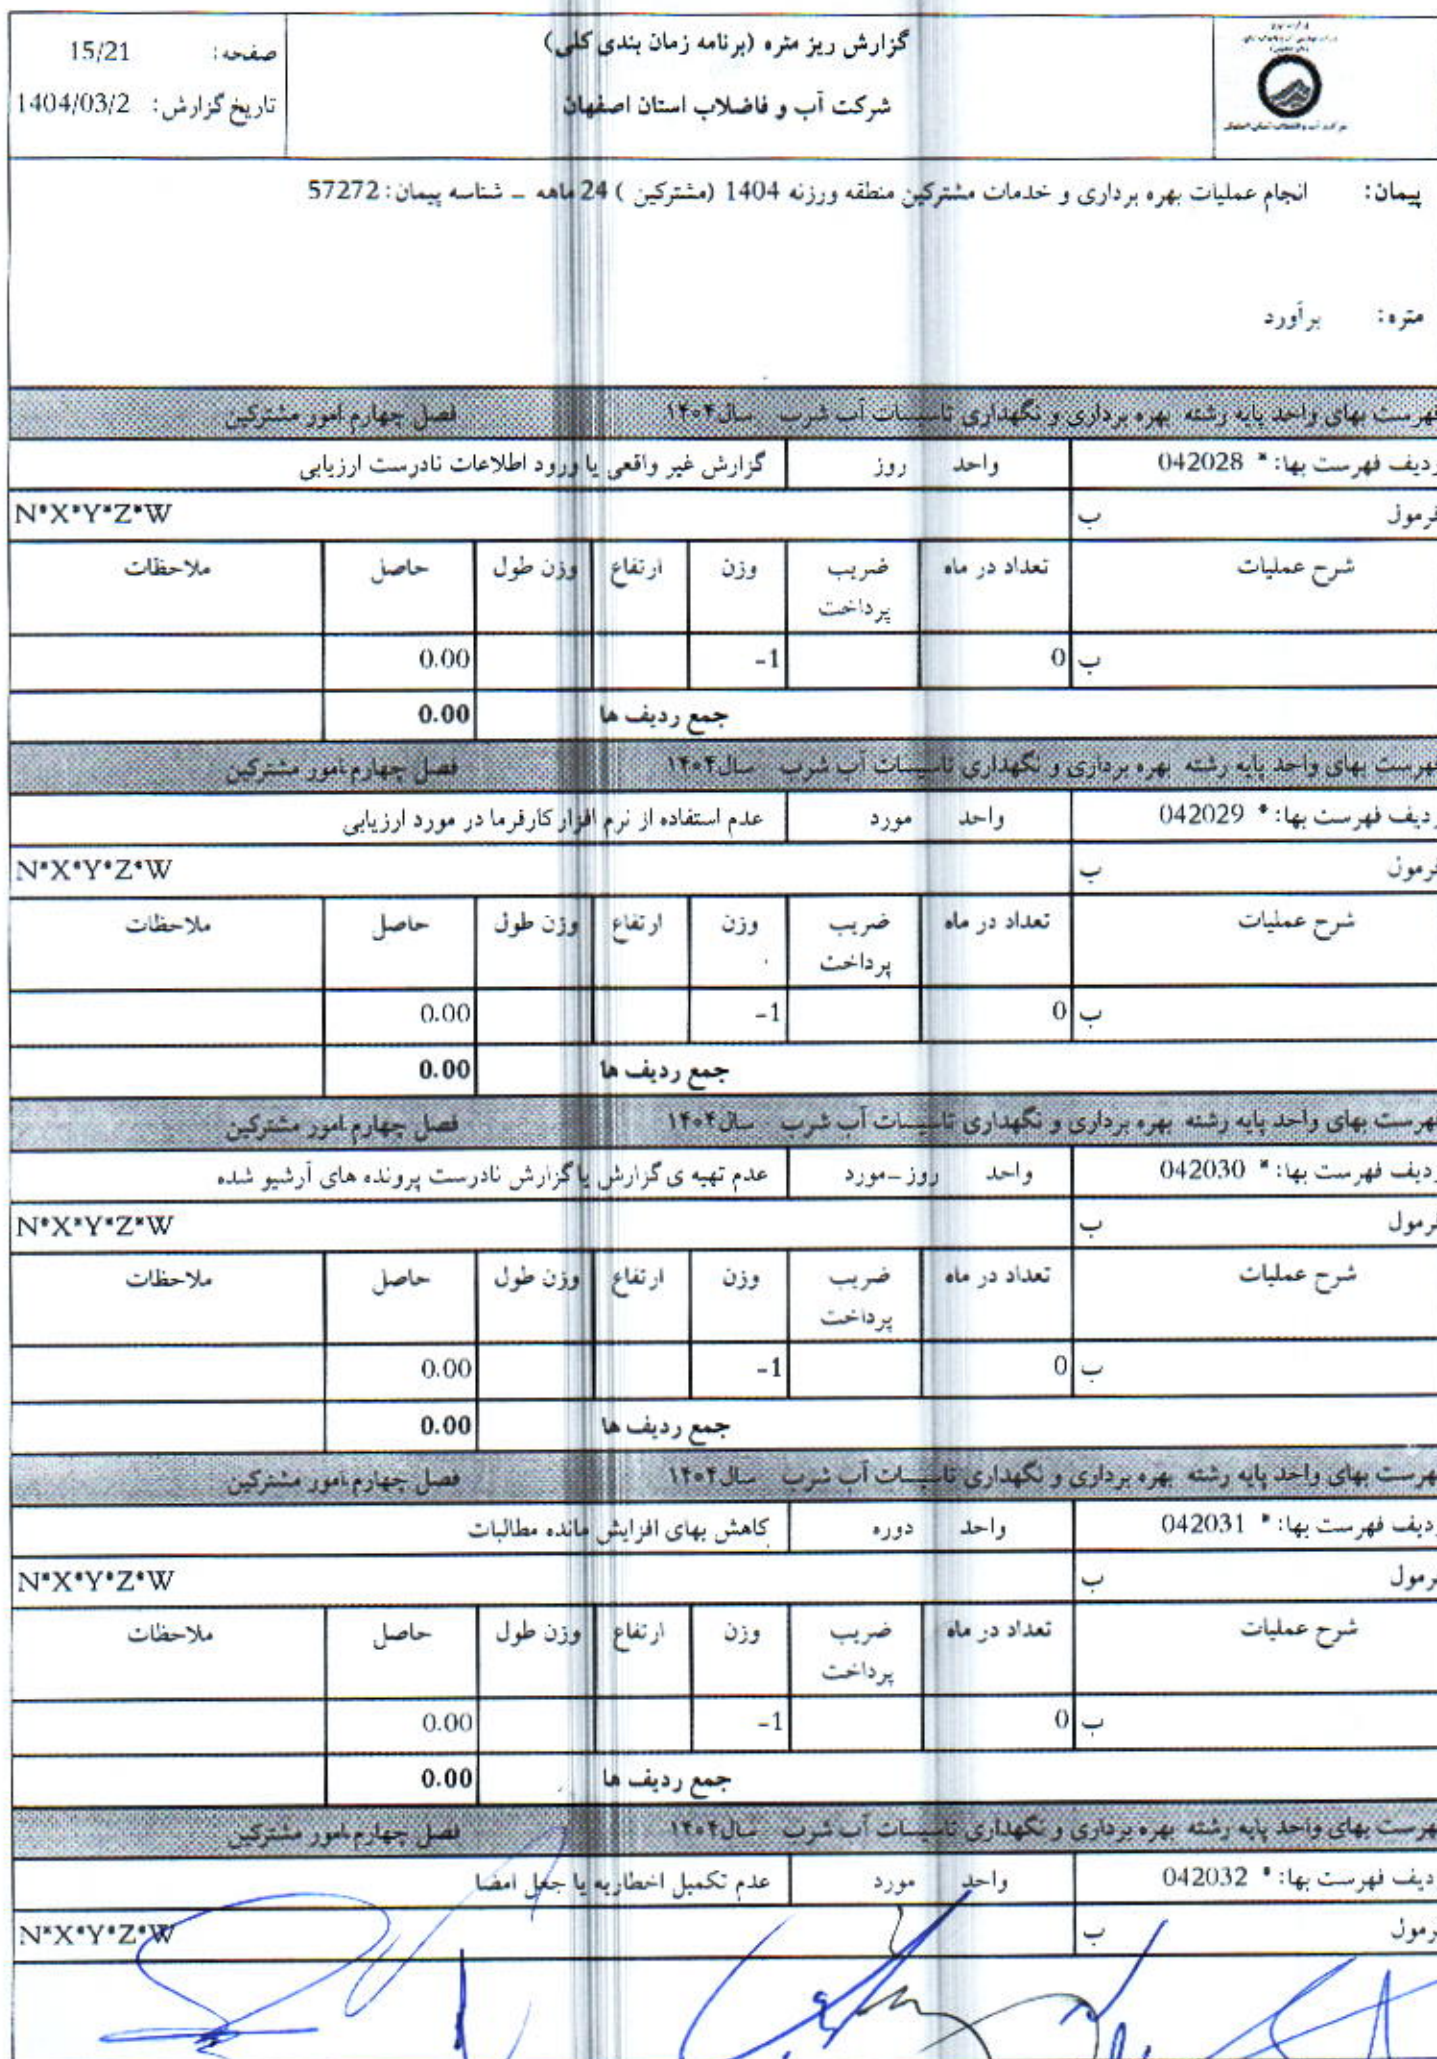 گزارش ریز متره (برنامه زمان بندی کلی)
شرکت آب و فاضلاب استان اصفهان
صفحه: 15/21
تاریخ گزارش: 1404/03/2
پیمان: انجام عملیات بهره برداری و خدمات مشترکین منطقه ورزنه 1404 (مشترکین ) 24 ماهه - شناسه پیمان: 57272
متره: برآورد
فهرست بهای واحد پایه رشته بهره برداری و نگهداری تاسیسات آب شرب سال۱۴۰۴ فصل چهارم.امور مشترکین
ردیف فهرست بها: * 042028 واحد روز گزارش غیر واقعی یا ورود اطلاعات نادرست ارزیابی
فرمول ب N*X*Y*Z*W
شرح عملیات تعداد در ماه ضریب پرداخت وزن ارتفاع وزن طول حاصل ملاحظات
ب 0 -1 0.00
جمع ردیف ها 0.00
فهرست بهای واحد پایه رشته بهره برداری و نگهداری تاسیسات آب شرب سال۱۴۰۴ فصل چهارم.امور مشترکین
ردیف فهرست بها: * 042029 واحد مورد عدم استفاده از نرم افزار کارفرما در مورد ارزیابی
فرمول ب N*X*Y*Z*W
شرح عملیات تعداد در ماه ضریب پرداخت وزن ارتفاع وزن طول حاصل ملاحظات
ب 0 -1 0.00
جمع ردیف ها 0.00
فهرست بهای واحد پایه رشته بهره برداری و نگهداری تاسیسات آب شرب سال۱۴۰۴ فصل چهارم.امور مشترکین
ردیف فهرست بها: * 042030 واحد روز-مورد عدم تهیه ی گزارش یا گزارش نادرست پرونده های آرشیو شده
فرمول ب N*X*Y*Z*W
شرح عملیات تعداد در ماه ضریب پرداخت وزن ارتفاع وزن طول حاصل ملاحظات
ب 0 -1 0.00
جمع ردیف ها 0.00
فهرست بهای واحد پایه رشته بهره برداری و نگهداری تاسیسات آب شرب سال۱۴۰۴ فصل چهارم.امور مشترکین
ردیف فهرست بها: * 042031 واحد دوره کاهش بهای افزایش مانده مطالبات
فرمول ب N*X*Y*Z*W
شرح عملیات تعداد در ماه ضریب پرداخت وزن ارتفاع وزن طول حاصل ملاحظات
ب 0 -1 0.00
جمع ردیف ها 0.00
فهرست بهای واحد پایه رشته بهره برداری و نگهداری تاسیسات آب شرب سال۱۴۰۴ فصل چهارم.امور مشترکین
ردیف فهرست بها: * 042032 واحد مورد عدم تکمیل اخطاریه یا جعل امضا
فرمول ب N*X*Y*Z*W